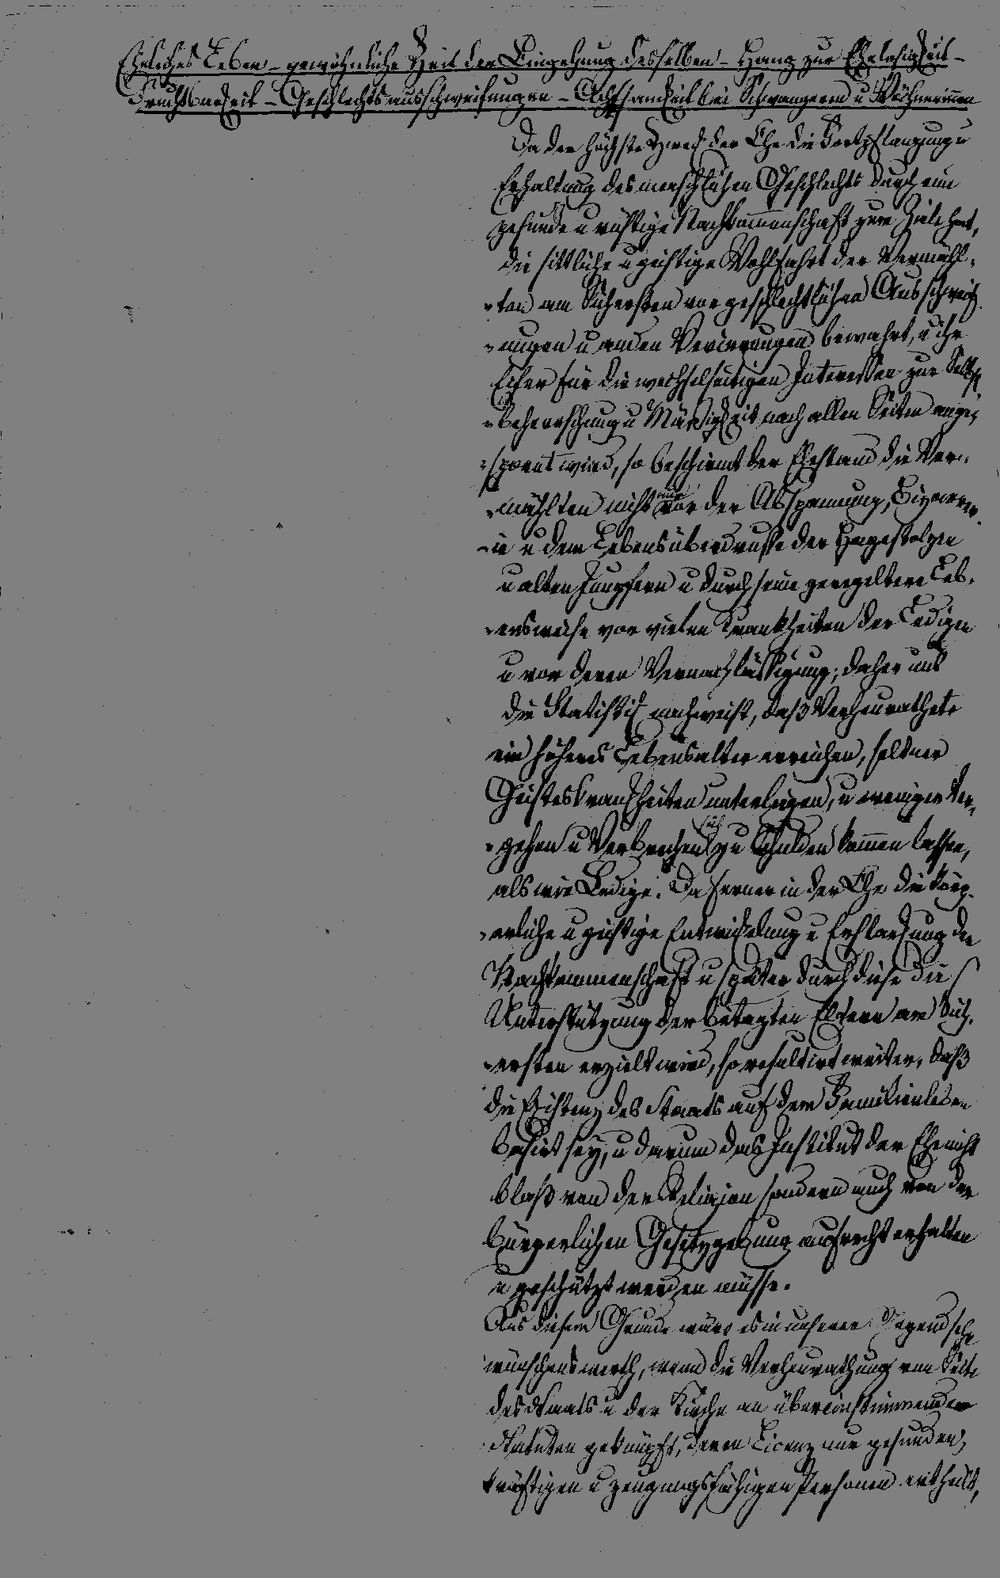 Eheliches Leben – gewöhnliche Zeit der Eingehung desselben – Hang zur Ehelosigkeit –
Fruchtbarkeit – Geschlechtsausschweifungen – Achtsamkeit bei Schwangeren u Wöchnerinnen
Da der höchste Zweck der Ehe die Fortpflanzung u
Erhaltung des menschlichen Geschlechts durch eine
gesunde u rüstige Nachkommenschaft zum Ziele hat,
die sittliche u geistige Wohlfahrt der Vermähl-
-ten am Sichersten vor geschlechtlichen Ausschweif-
-ungen u anden Verirrungen bewahrt, u ihr
Eifer für die wechselseitigen Interessen zur Selbst
-beherrschung u Mäßigkeit nach allen Seiten ange-
-spornt wird, so beschirmt der Ehestand die Ver-
-mählten nicht nur vor der Abspannung, Bizarrer-
-ie u dem Lebensüberdrusse der Hagestolzen
u alten Jungfern u durch seine geregeltere Leb-
-ensweise vor vielen Krankheiten der Ledigen
u vor deren Vernachlässigung; daher uns
die Statistik nachweist, daß Verheurathete
ein höheres Lebensalter erreichen, seltner
Geisteskrankheiten unterliegen, u weniger Ver-
-gehen u Verbrechen sich zu Schulden kommen lassen,
als wie Ledige. Da ferner in der Ehe die körp-
-erliche u geistige Entwickelung u Erstarkung der
Nachkommenschaft u später durch diese die
Unterstützung der betagten Eltern am Sich-
-ersten erzielt wird, so resultirt weiter, daß
die Existenz des Staats auf dem Familienleben
basirt sey, u darum das Institut der Ehe nicht
bloß von der Religion sondern auch von der
bürgerlichen Gesetzgebung aufrecht erhalten
u geschützt werden müsse.
Aus diesem Grunde wäre es in unserer Gegend sehr
wünschenswerth, wenn die Verheurathung von Seite
des Staats u der Kirche an übereinstimmenden
Statuten geknüpft, deren Licenz nur gesunden,
kräftigen u zeugungsfähigen Personen ertheilt,